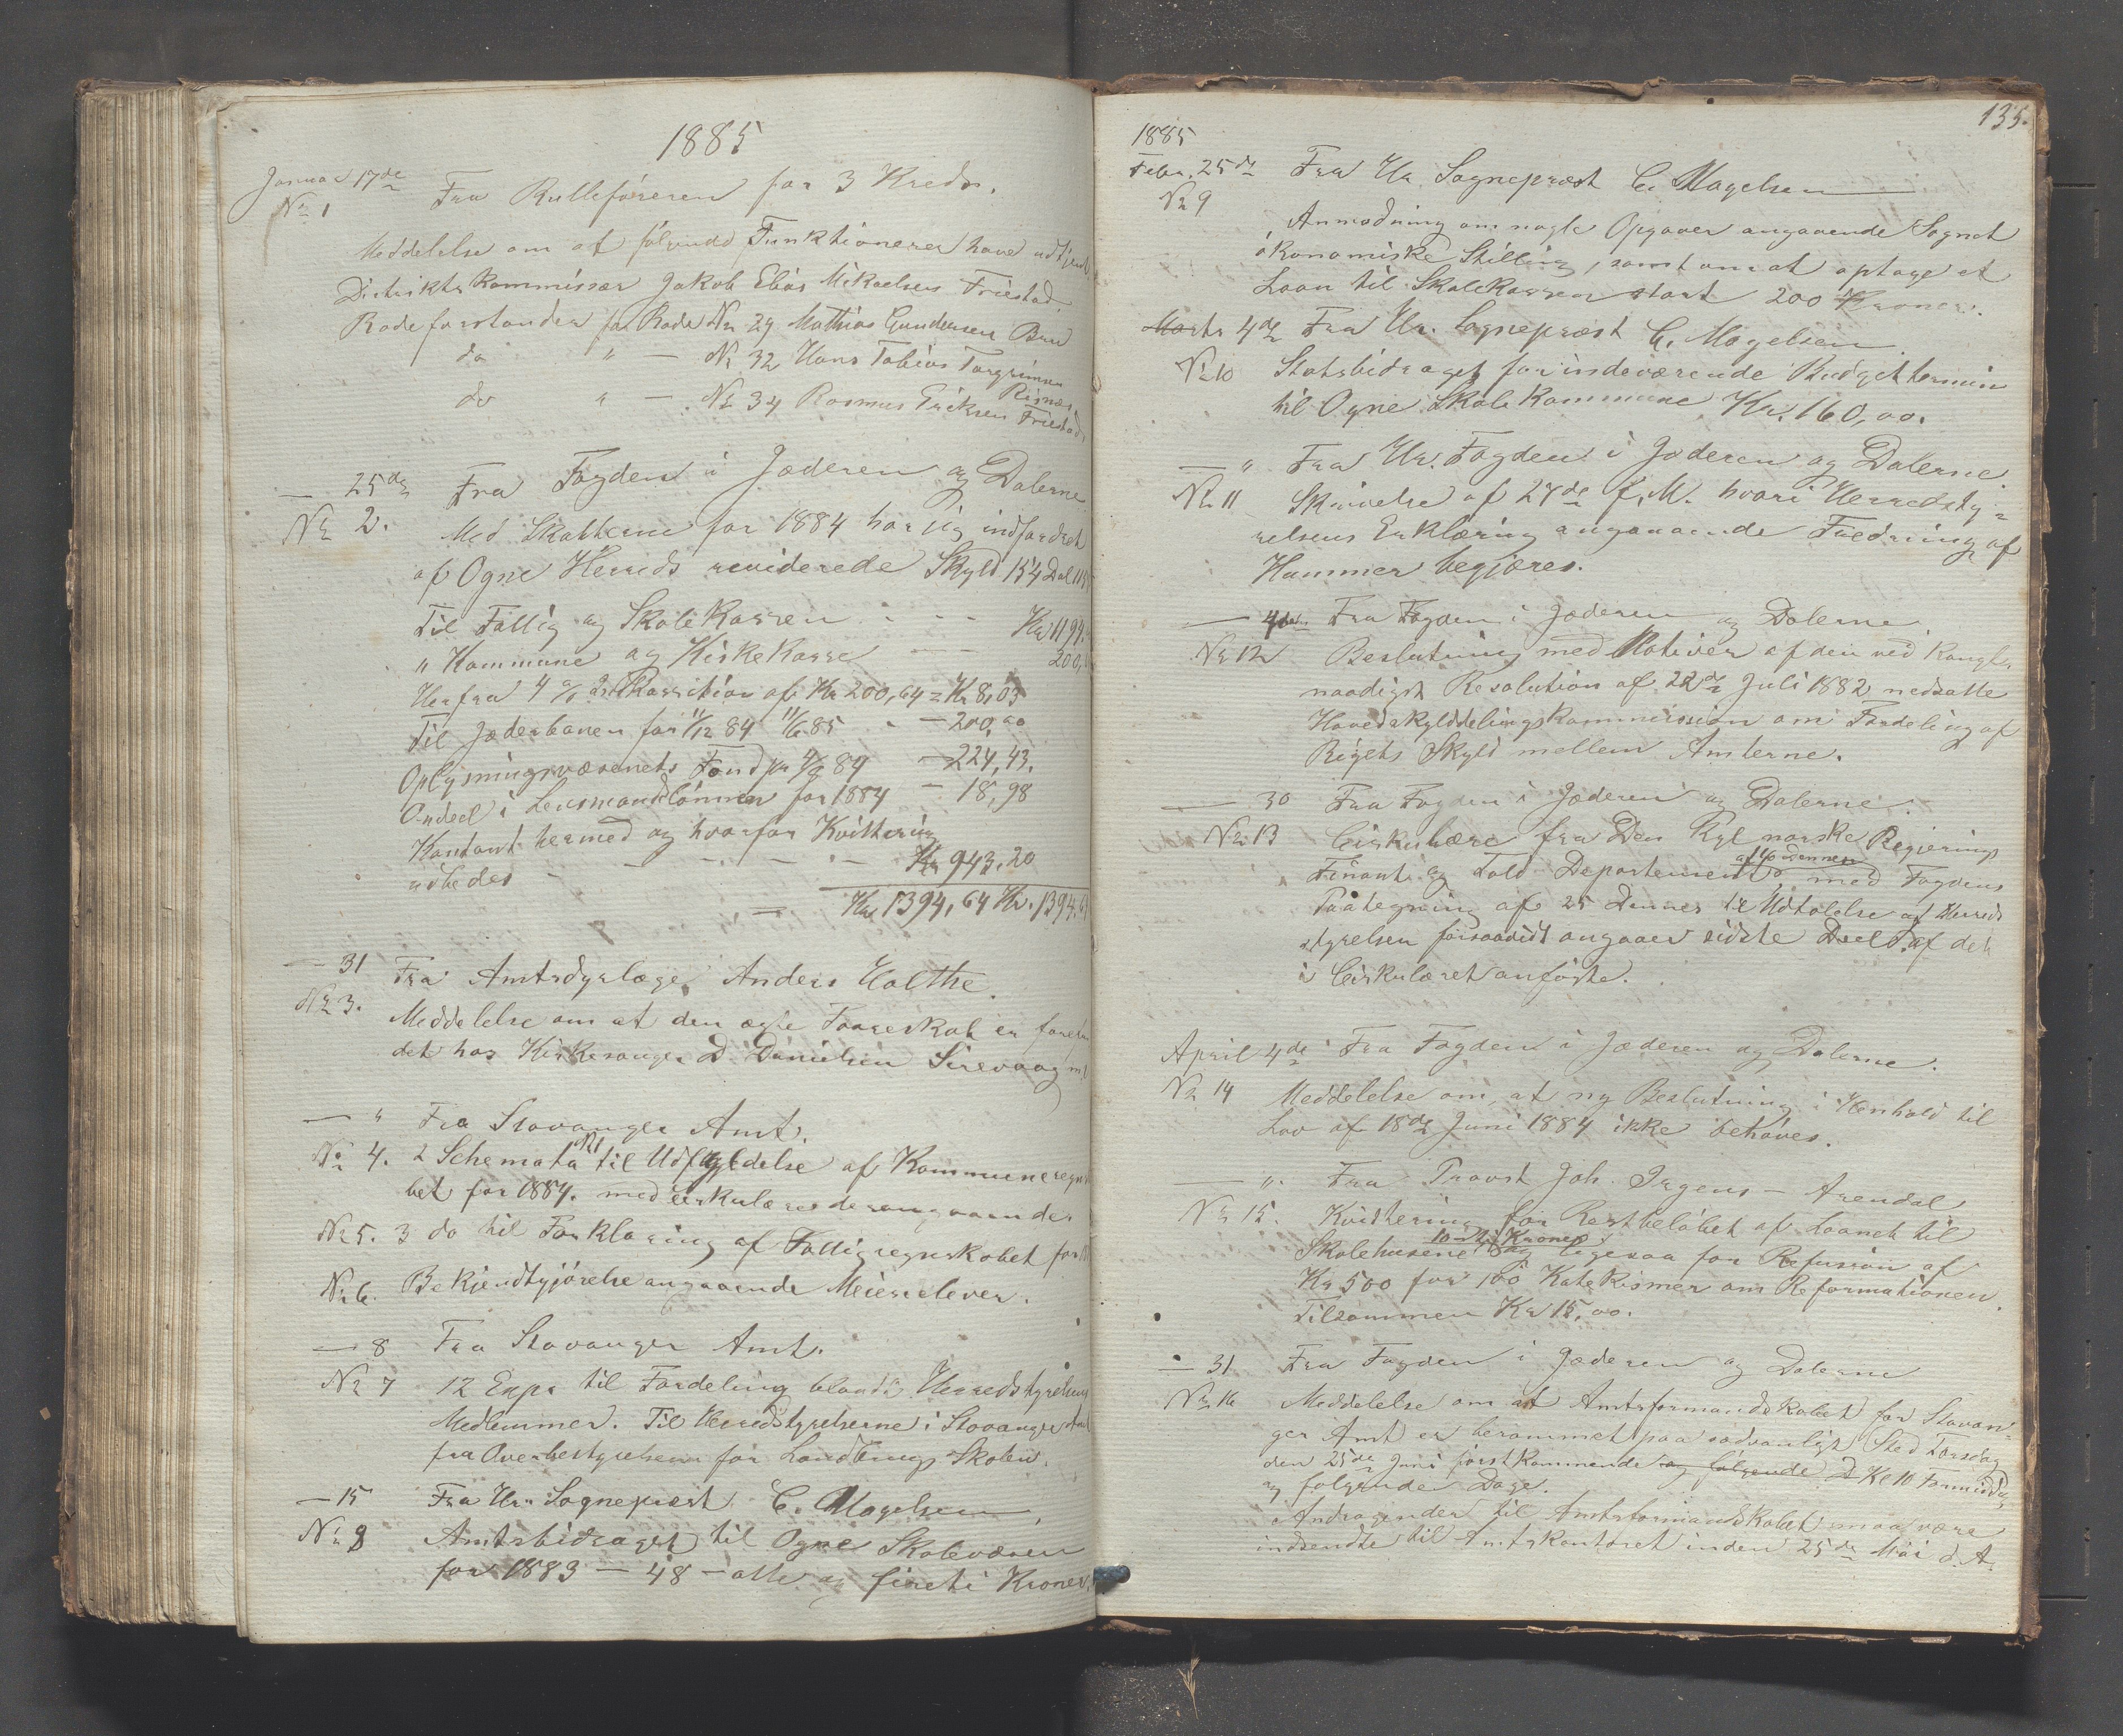 1885
Januar 17de Fra Rulleföreren for 3 Kreds.
No 1
Meddelelse om at følgende Funktionerer have udtjent
Distrikts Kommissær Jakob Elias Mikaelsen Friestad
Rodeforstander for Rode No 29 Mathias Gundersen Bru
do " — No 32 Hans Tobias Torgrimsen
Risnes
do " — No 34 Rasmus Eriksen Friestad
— 25de Fra Fogden i Jæderen og Dalerne
No 2. Med Skatterne for 1884 har jeg indfordret
af Ogne Herreds reviderede Skyld 154 Dal
Til Fattig og Skolekassen - - - Kr 1194.
" Kommune og Kirkekasse — 200,
Herfra 4 % i Kr 200,64 = Kr 8,03
Til Jæderbanen for 11/12 84 11/6 85 - — 200,00
Oplysningsvæsenets Fond pr 84 — 224,43.
Andel i Lensmandslönnen for 1884 — 18,98
Kontant hermed og hvorfor Kvittering
udbedes - - - - Kr 943,20
— Kr 1394,64 Kr. 1394,64
— 31 Fra Amtsdyrlæge Anders Holthe.
No 3. Meddelelse om at den ægte Faareskab er
det hos Kirkesanger D. Danielsen Sirevaag
— " Fra Stavanger Amt.
No 4. 2 Schemata til Udfyldelse af Kommuneregn
bet for 1884. med Cirkulære derangaaende.
No 5. 3 do til Forklaring af Fattigregnskabet for
No 6. Bekjendtgjörelse angaaende Meierielever.
— 8 Fra Stavanger Amt.
No 7 12 Expr til Fordeling blandt Herredstyrelsens
Medlemmer. Til Herredstyrelserne i Stavanger Amt
fra Overbestyrelsen for Landbrugs Skolen.
— 15 Fra Hr. Sogneprest C. Magelsen,
No 8 Amtsbidraget til Ogne Skolevæsen
for 1883 — 48 — otte og fireti Kroner.
135.
1885
Febr. 25de Fra Hr. Sogneprest C. Magelsen
No 9
Anmodning om nogle Opgaver angaaende Sognets
ökonomiske Stilling, samt om at optage et
Laan til Skolekassen stort 200 Kroner.
Marts 4de Fra Hr. Sogneprest C. Magelsen.
No 10 Statsbidraget for indeværende Budgettermin
til Ogne Skolekommune Kr. 160,00.
— " Fra Hr. Fogden i Jæderen og Dalerne.
No 11 Skrivelse af 27de f. M. hvori Herredsty-
relsens Erklæring angaaende Fredning af
Hummer begjæres.
— 4de Fra Fogden i Jæderen og Dalerne
No 12 Beslutning med Motiver af den ved Kongl.
naadigst Resolution af 22de Juli 1882 nedsatte
Hovedskylddelingskommission om Fordeling af
Rigets Skyld mellem Amterne.
— 30 Fra Fogden i Jæderen og Dalerne.
No 13 Cirkulære fra Den Kgl norske Regjerings
Finants og Told Departement af 16 dennes med Fogdens
Paategning af 25 Dennes til Udtalelse af Herreds
styrelsen forsaavidt angaaer sidste Deel af det
i Cirkulæret anförte.
April 4de Fra Fogden i Jæderen og Dalerne.
No 14 Meddelelse om, at ny Beslutning i Henhold til
Lov af 18de Juni 1884 ikke behöves.
— ". Fra Provst Joh. Irgens — Arendal
No 15. Kvittering for Restbelöbet af Laanet til
Skolehusene 10 Kroner og ligesaa for Refusion af
Kr 500 for 100 Katekismer om Reformationen.
Tilsammen Kr 15,00.
— 31 Fra Fogden i Jæderen og Dalerne
No 16 Meddelelse om at Amtsformandskabet for Stavan-
ger Amt er berammet paa sædvanligt Sted Torsdag
den 25de Juni förstkommende og følgende D Kl 10 Formiddag
og følgende Dage.
Andragender til Amtsformandskabet maa være
indsendte til Amtskontoret inden 25de Mai d. A.